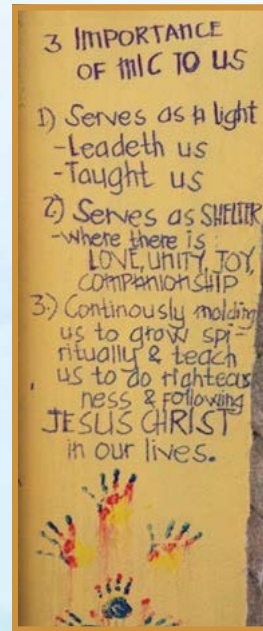 3 IMPORTANCE
OF MIC TO US
1) Serves as a light
-Leadeth us
-Taught us
2) Serves as SHELTER
-where there is
LOVE, UNITY, JOY,
COMPANIONSHIP
3.) Continously molding
us to grow spi-
ritually & teach
us to do righteous
ness & following
JESUS CHRIST
in our lives.